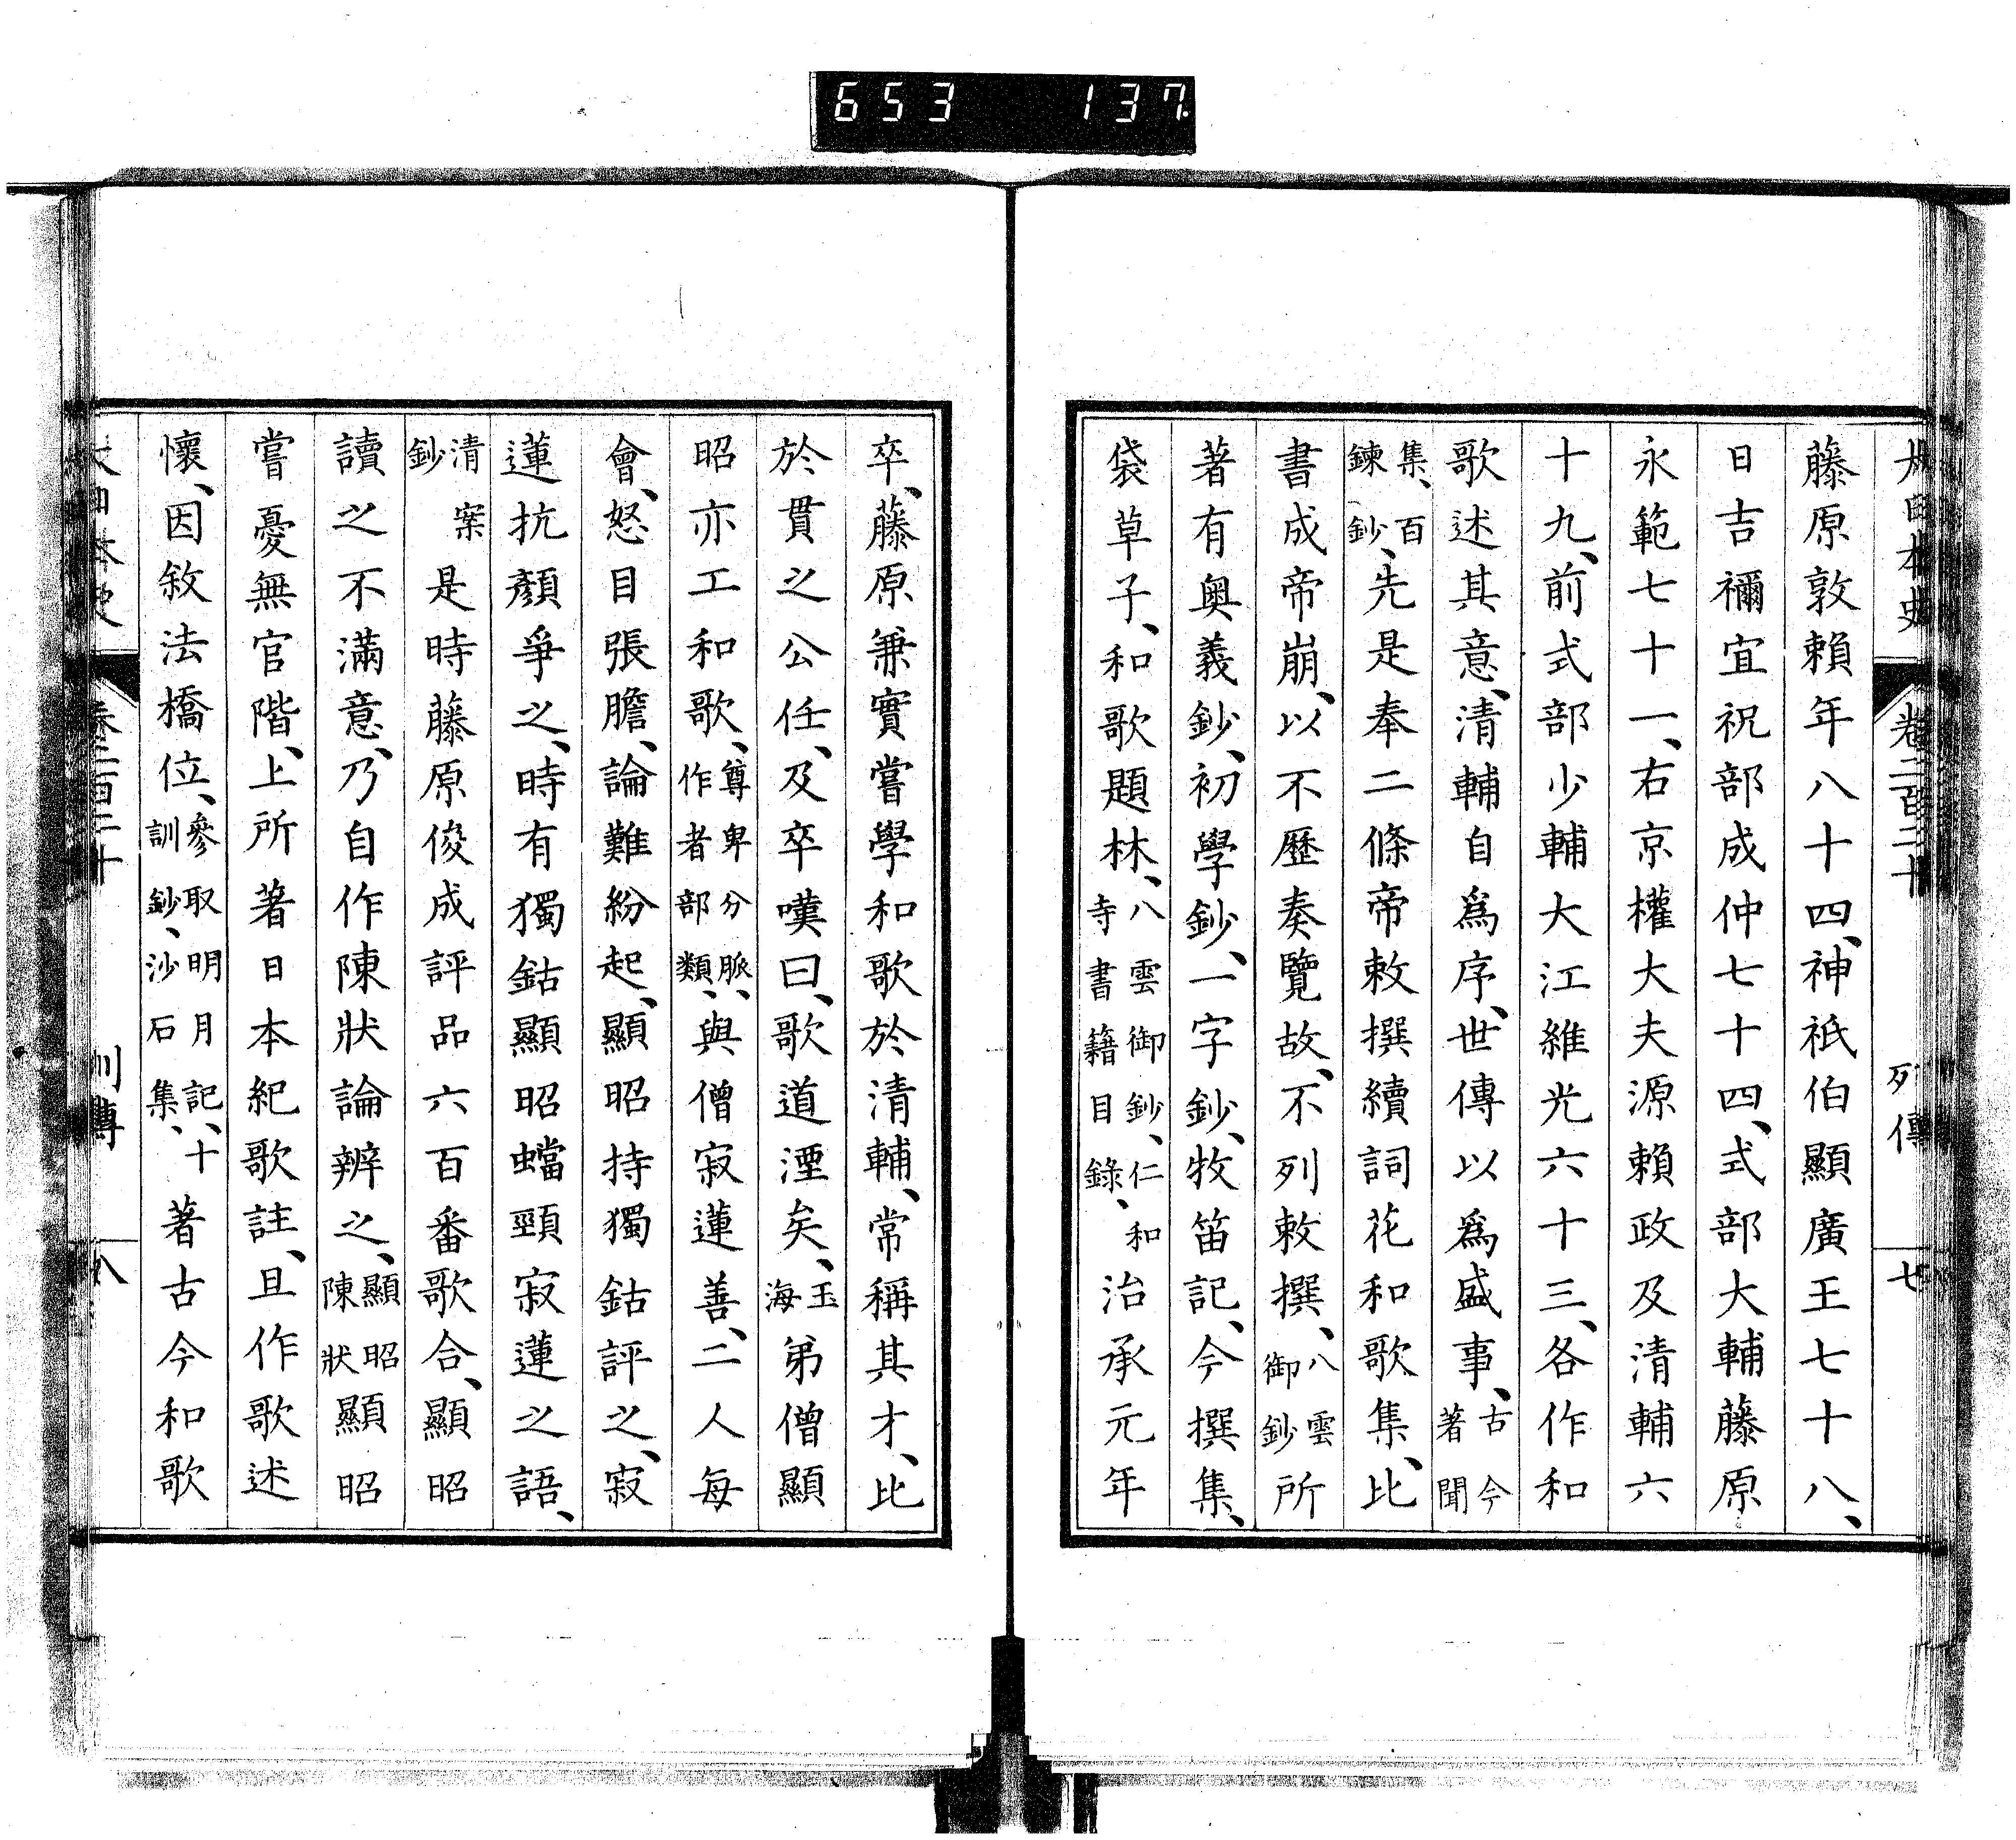 653 137
大日本史 卷二百二十 列傳 七
藤原敦賴年八十四、神祇伯顯廣王七十八、
日吉禰宜祝部成仲七十四、式部大輔藤原
永範七十一、右京權大夫源賴政及清輔六
十九、前式部少輔大江維光六十三、各作和
歌述其意、清輔自爲序、世傳以爲盛事、古今著聞
集、百鍊鈔、先是奉二條帝敕撰續詞花和歌集、比
書成帝崩、以不歷奏覽故、不列敕撰、八雲御鈔所
著有奧義鈔、初學鈔、一字鈔、牧笛記、今撰集、
袋草子、和歌題林、八雲御鈔、仁和寺書籍目錄、治承元年
卒、藤原兼實嘗學和歌於清輔、常稱其才、比
於貫之公任、及卒嘆曰、歌道湮矣、玉海弟僧顯
昭亦工和歌、尊卑分脈、作者部類、與僧寂蓮善、二人每
會、怒目張膽、論難紛起、顯昭持獨鈷評之、寂
蓮抗顏爭之、時有獨鈷顯昭蟷頸寂蓮之語、
清案鈔是時藤原俊成評品六百番歌合、顯昭
讀之不滿意、乃自作陳狀論辨之、顯昭陳狀顯昭
嘗憂無官階、上所著日本紀歌註、且作歌述
懷、因敘法橋位、參取明月記、十訓鈔、沙石集、著古今和歌
大日本史 卷二百二十 列傳 八